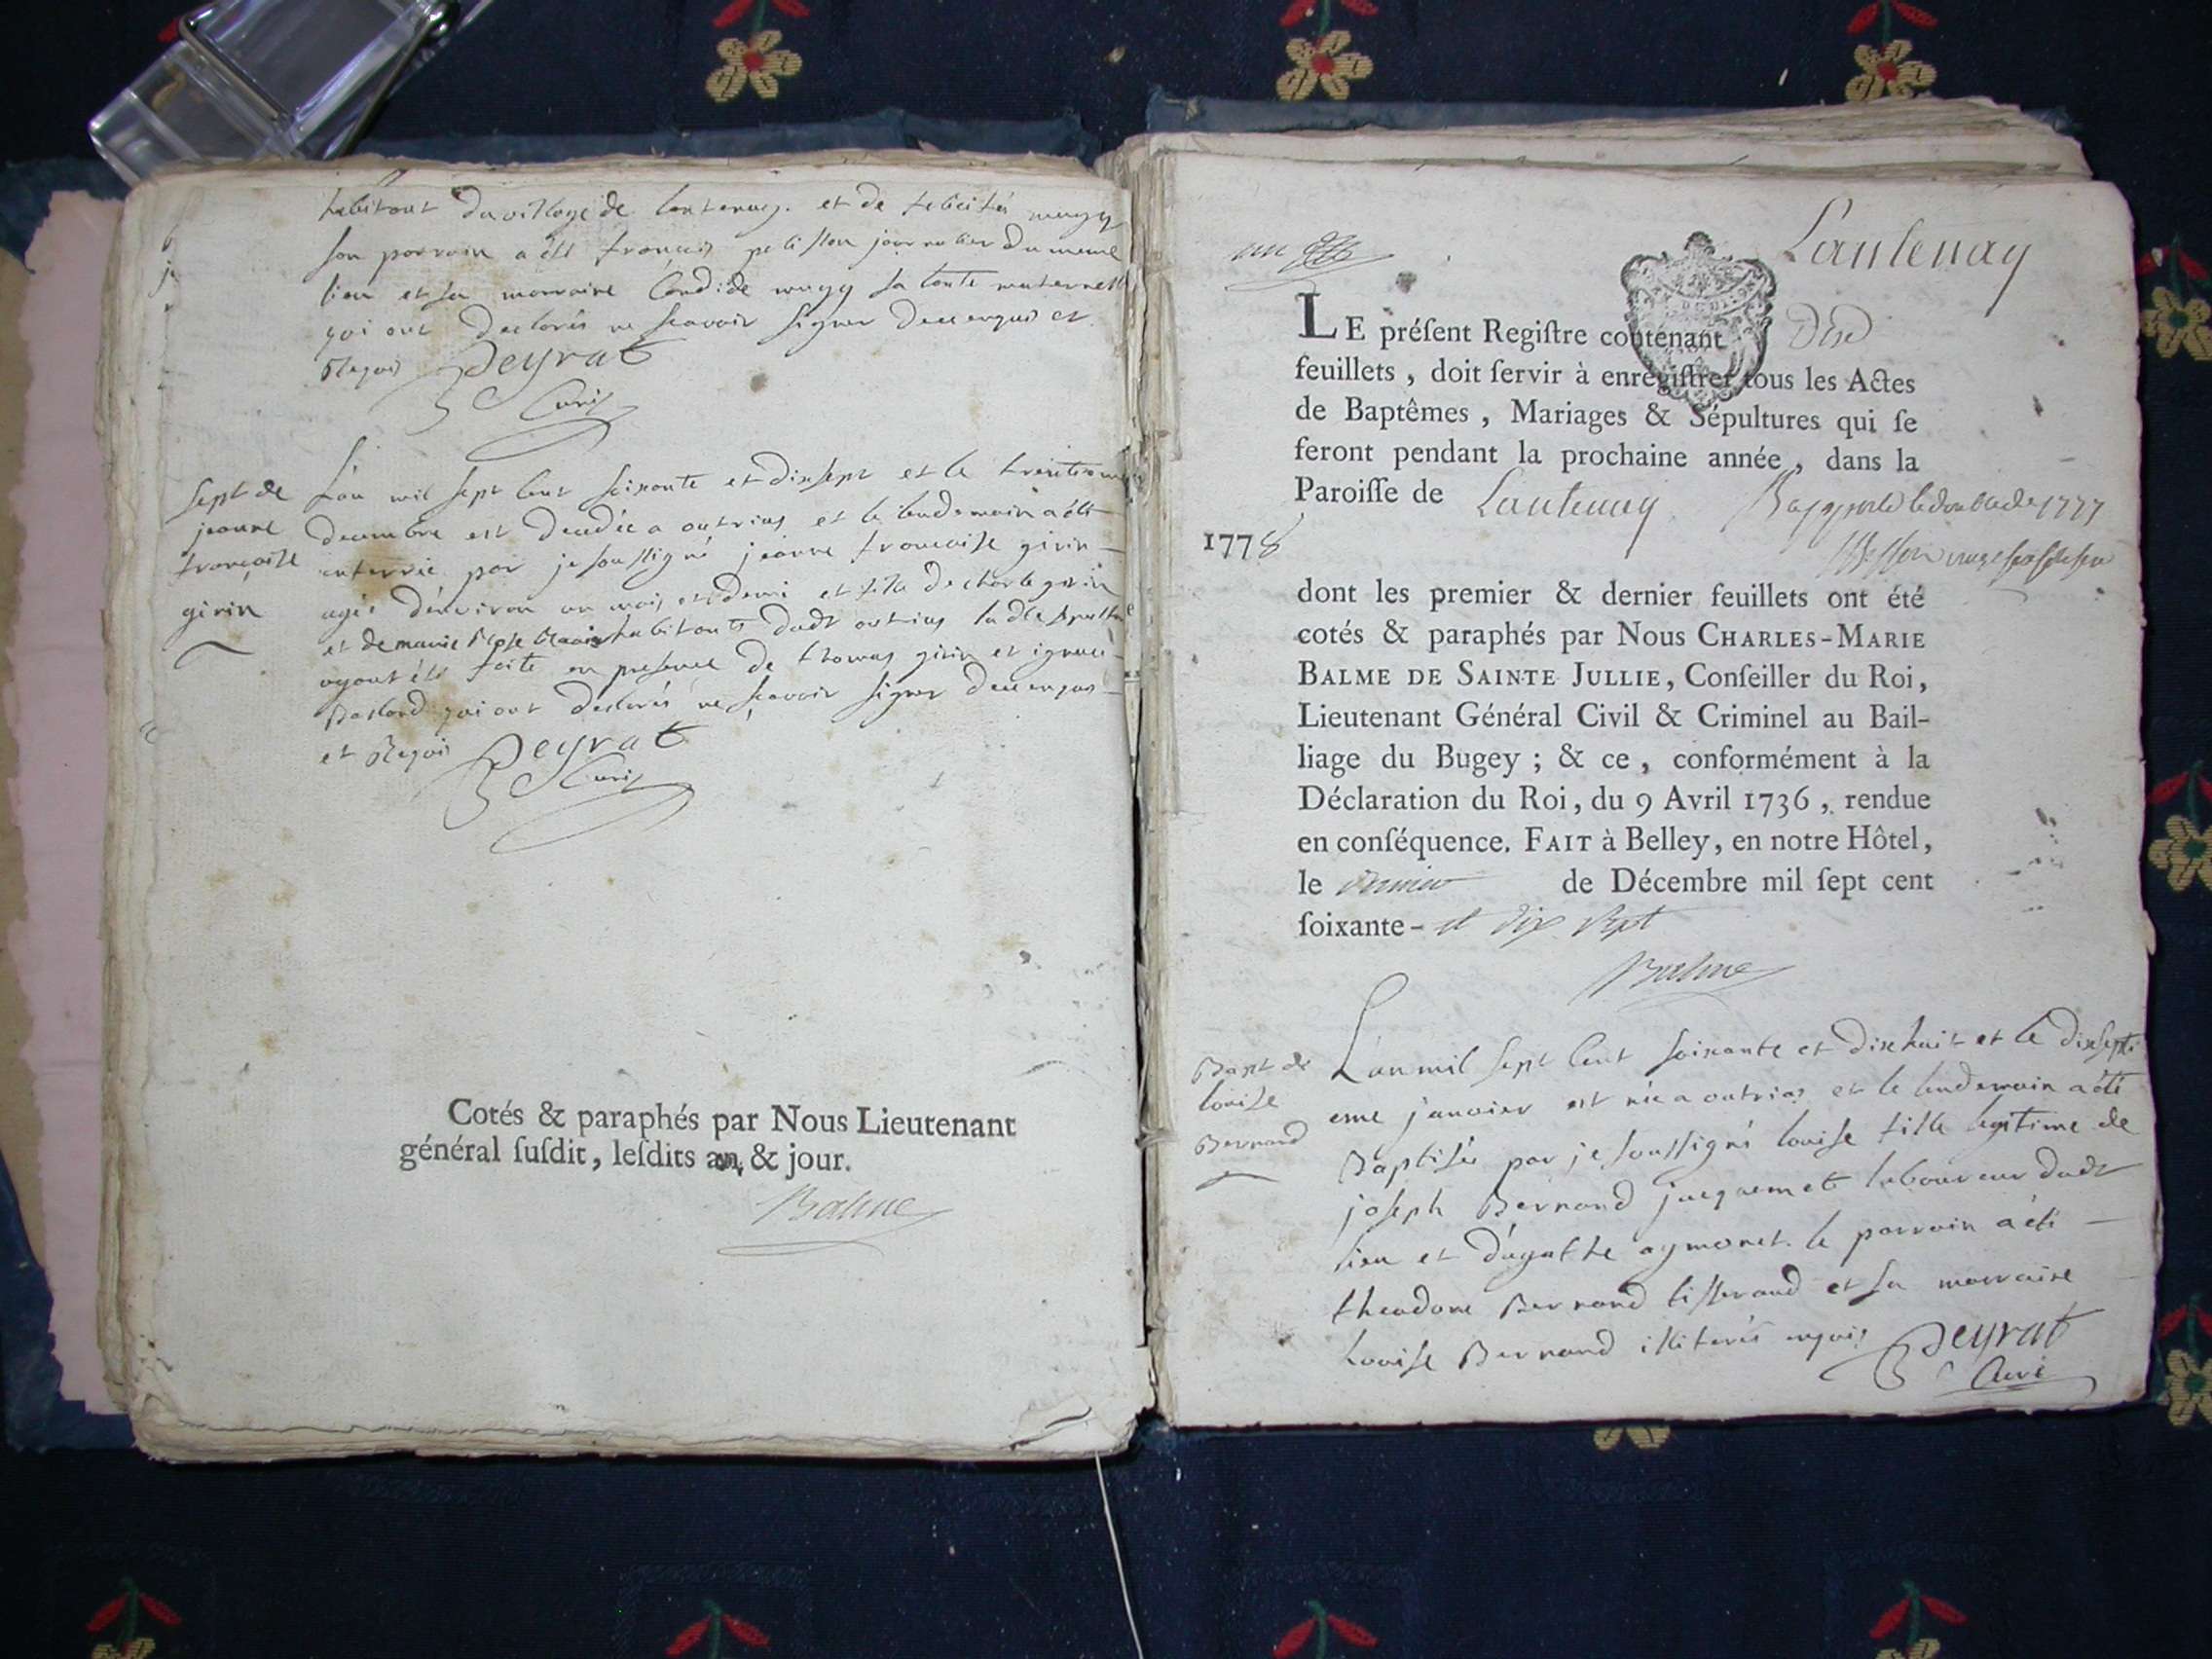 habitant du village de lantenay. et de felicité mugy
son parrain a été françois pelisson journalier du meme
lieu et sa marraine Candide mugy sa tante maternelle
qui ont declarés ne scavoir signer de ce enquis et
Requis Peyrat
Curé
Sept de
jeanne
françoise
girin
L'an mil sept cent soixante et dix sept et le trentieme
decembre est decedée a outrias et le lendemain a été
enterrée par je soussigné jeanne francoise girin
agée d'environ un mois et demi et fille de charle girin
et de marie Rose habitants dudt outrias la dte Sepulture
ayant été faite en presence de thomas girin et ignace
qui ont declarés ne scavoir signer de ce enquis
et Requis Peyrat
Curé
Cotés & paraphés par Nous Lieutenant
général ſuſdit, leſdits an, & jour.
Balme
un
Lantenay
LE préſent Regiſtre contenant dix
feuillets, doit ſervir à enregiſtrer tous les Actes
de Baptêmes, Mariages & Sépultures qui ſe
feront pendant la prochaine année, dans la
Paroiſſe de Lantenay Rapporté le double de 1777
1778
dont les premier & dernier feuillets ont été
cotés & paraphés par Nous CHARLES-MARIE
BALME DE SAINTE JULLIE, Conſeiller du Roi,
Lieutenant Général Civil & Criminel au Bail-
liage du Bugey ; & ce, conformément à la
Déclaration du Roi, du 9 Avril 1736, rendue
en conſéquence. FAIT à Belley, en notre Hôtel,
le dernier de Décembre mil ſept cent
ſoixante- et dix Sept
Balme
Bapt de
louise
Bernard
L'an mil sept Cent soixante et dix huit et le dixsepti
eme janvier est née a outrias et le lendemain a été
Baptisée par je soussigné louise fille legitime de
joseph Bernard jacquemet laboureur dudt
lieu et d'agathe aymonet. le parrain a été
theodore Bernard tisserand et sa marraine
Louise Bernard illiterés enquis Peyrat
Curé